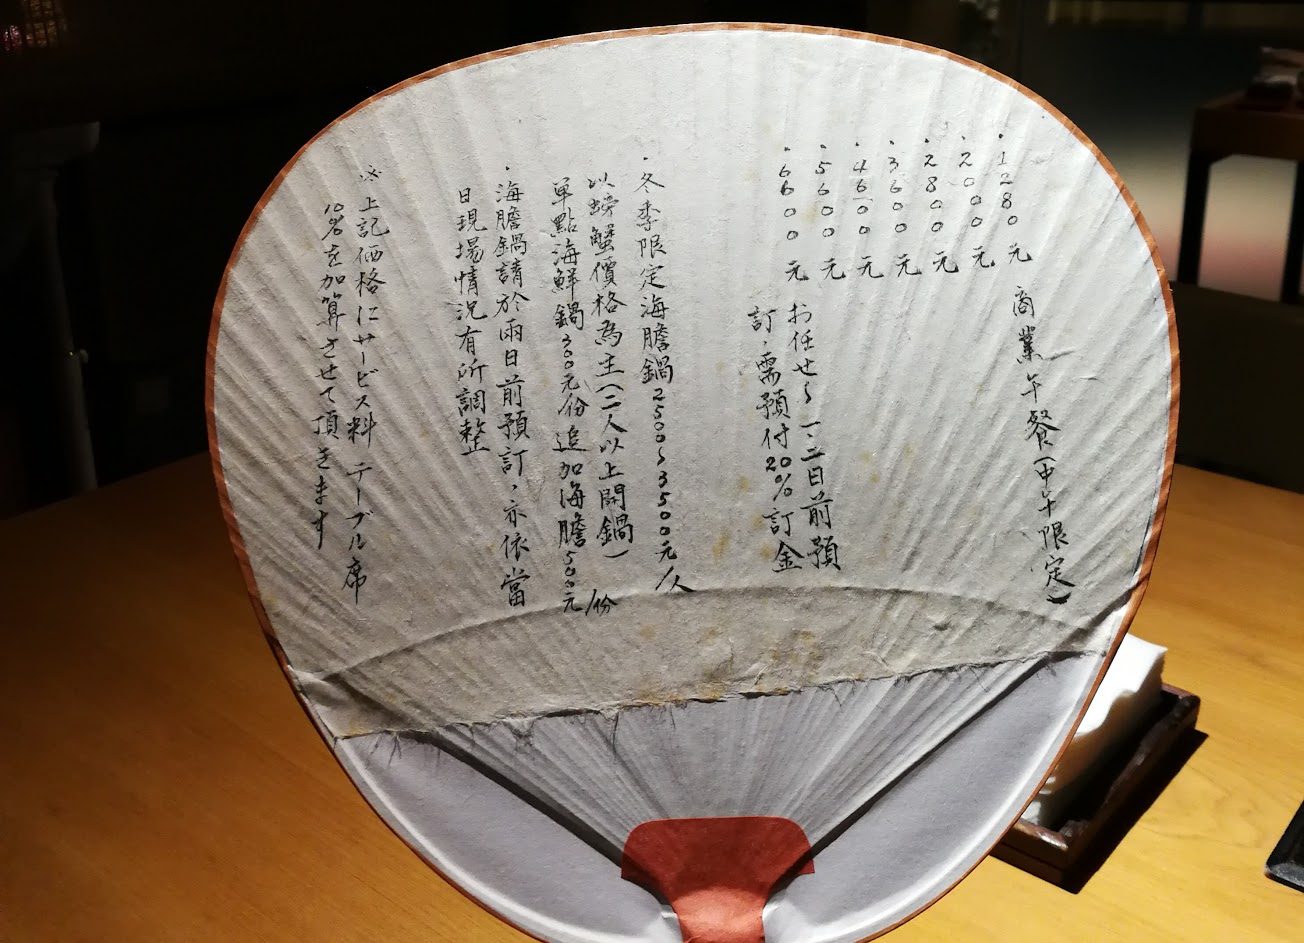 ・1280元 商業午餐(中午限定)
・2000元
・2800元
・3600元
・4600元
・5600元
・6600元 お任せ~一、二日前預
訂,需預付20%訂金
・冬季限定海膽鍋2500~3500元/人
以螃蟹價格為主(二人以上開鍋)
單點海鮮鍋300元份追加海膽500元/份
・海膽鍋請於兩日前預訂,亦依當
日現場情況有所調整
※上記価格にサービス料 テーブル席
10%を加算させて頂きます